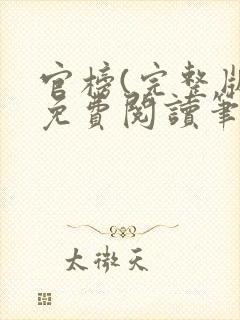 官榜(完整版
免費閱讀筆
太微天